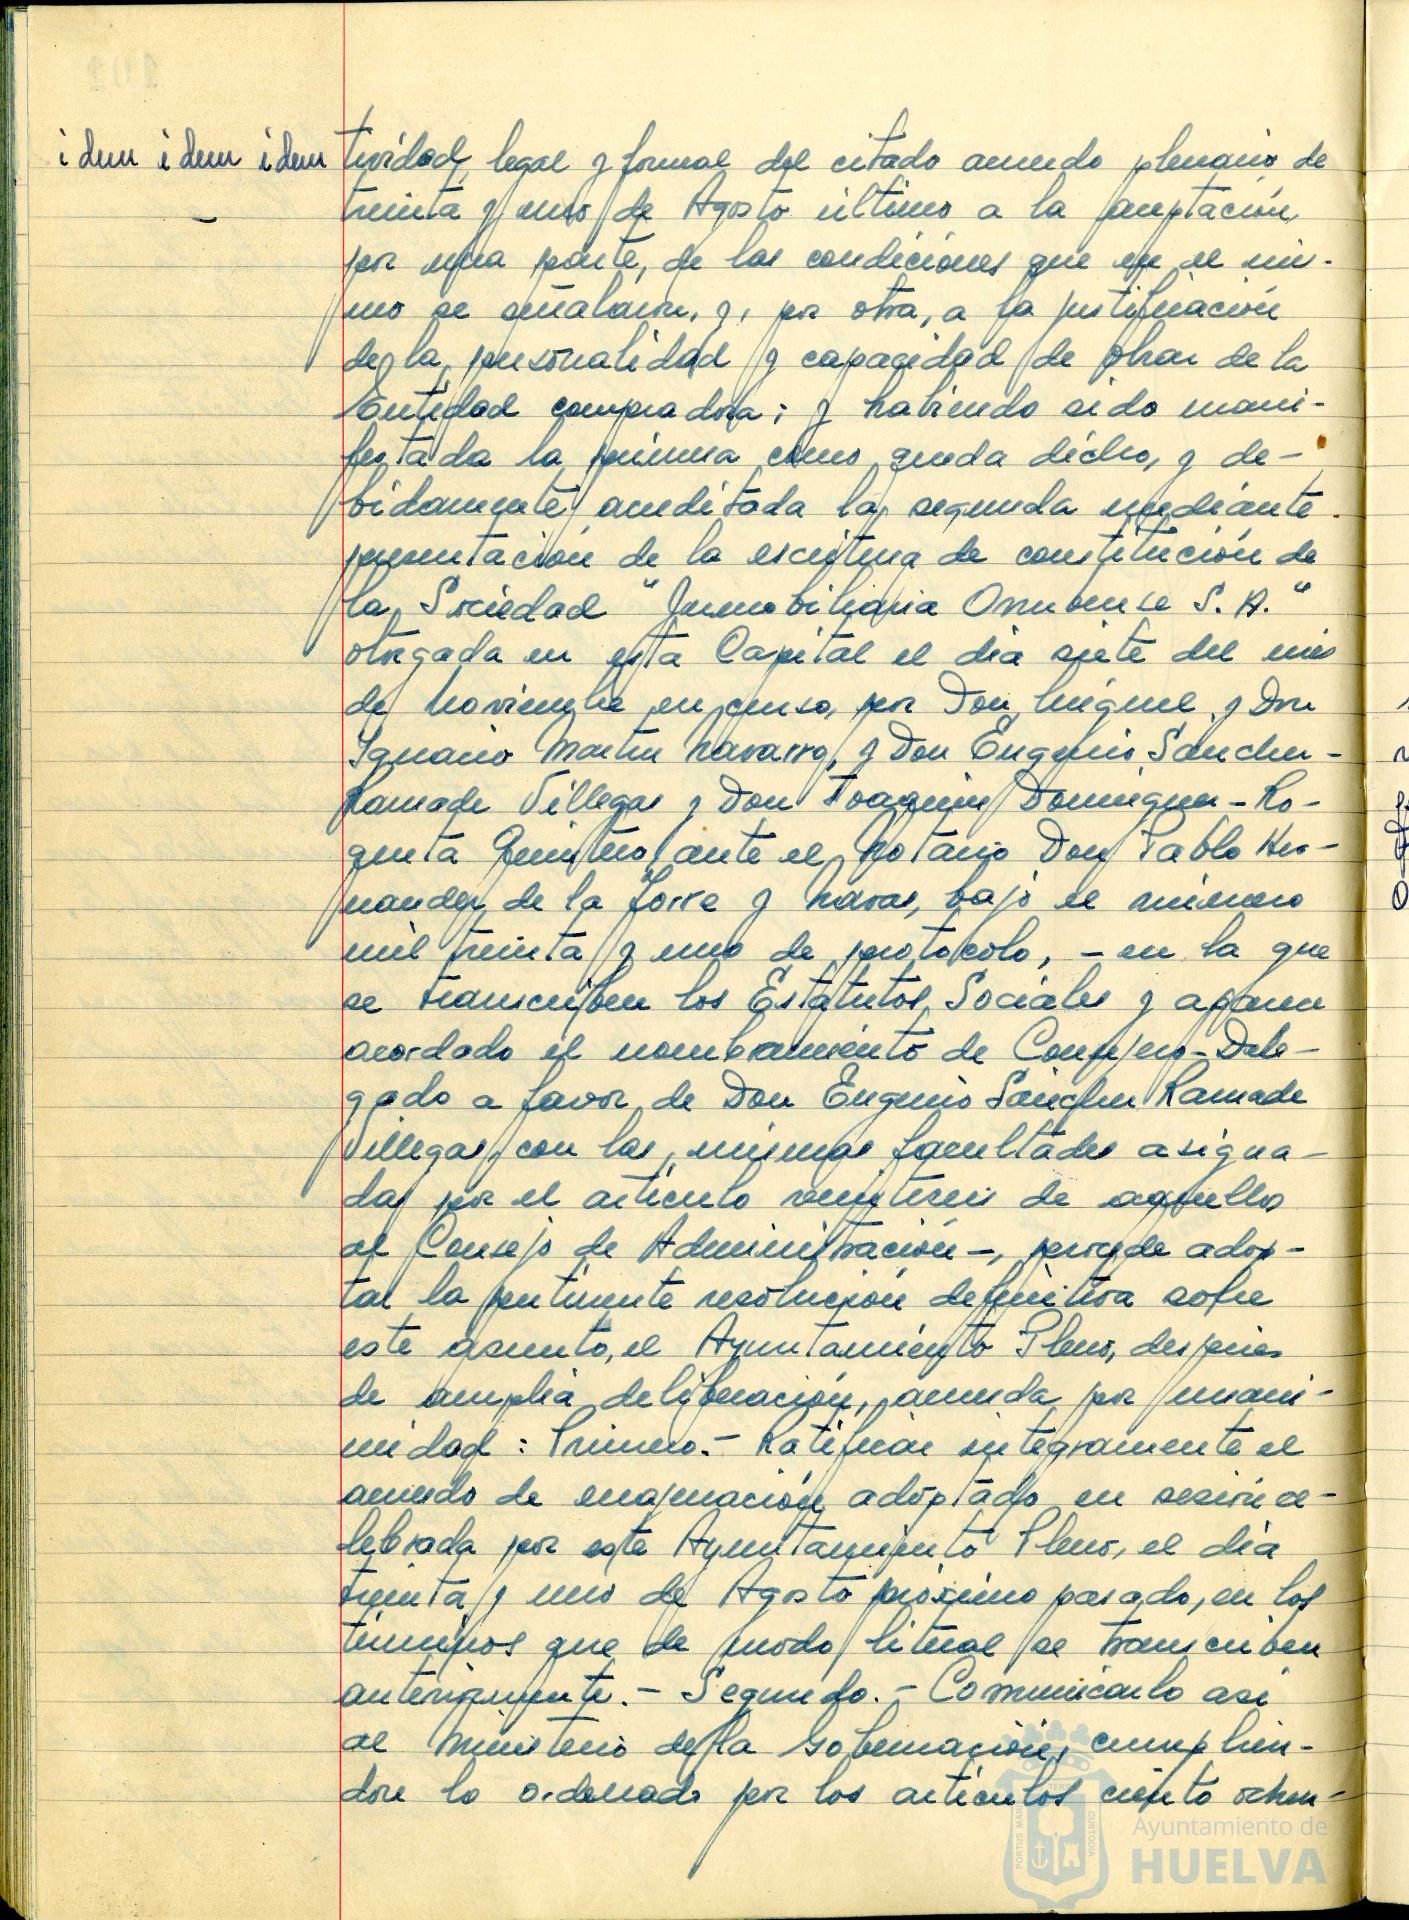 idem idem idem
tividad, legal y formal del citado acuerdo plenario de
treinta y uno de Agosto último a la aceptación,
por una parte, de las condiciones que en el mis-
mo se señalaron, y, por otra, a la justificación
de la personalidad y capacidad de obrar de la
Entidad compradora; y habiendo sido mani-
festada la primera como queda dicho, y de-
bidamente acreditada la segunda mediante
presentación de la escritura de constitución de
la Sociedad "Inmobiliaria Onubense S. A."
otorgada en esta Capital el día siete del mes
de Noviembre en curso, por Don Miguel y Don
Ignacio Martin Navarro, y Don Eugenio Sanchez-
Ramade Villegas y Don Joaquin Dominguez-Ro-
queta Quintero, ante el Notario Don Pablo Her-
nandez de la Torre y Navas, bajo el número
mil treinta y uno de protocolo, - en la que
se transcriben los Estatutos Sociales y aparece
acordado el nombramiento de Consejero-Dele-
gado a favor de Don Eugenio Sánchez Ramade
Villegas, con las mismas facultades asigna-
das por el artículo veintiseis de aquellos
al Consejo de Administración -, procede adop-
tar la pertinente resolución definitiva sobre
este asunto, el Ayuntamiento Pleno, despúes
de amplia deliberación, acuerda por unani-
midad: Primero.- Ratificar integramente el
acuerdo de enajenación adoptado en sesión ce-
lebrada por este Ayuntamiento Pleno, el día
treinta y uno de Agosto próximo pasado, en los
términos que de modo literal se transcriben
anteriormente. - Segundo. - Comunicarlo asi
al Ministerio de la Gobernación, cumplien-
dose lo ordenado por los artículos ciento ochen-
PORTUS MARIS
CUSTODIA
Ayuntamiento de
HUELVA